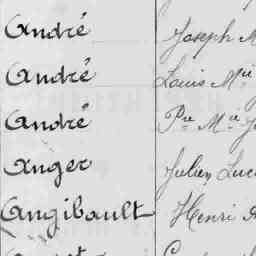 André Joseph M
André Louis Mie
André Pre Mie J
Anger Julien Luc
Angibault Henri A